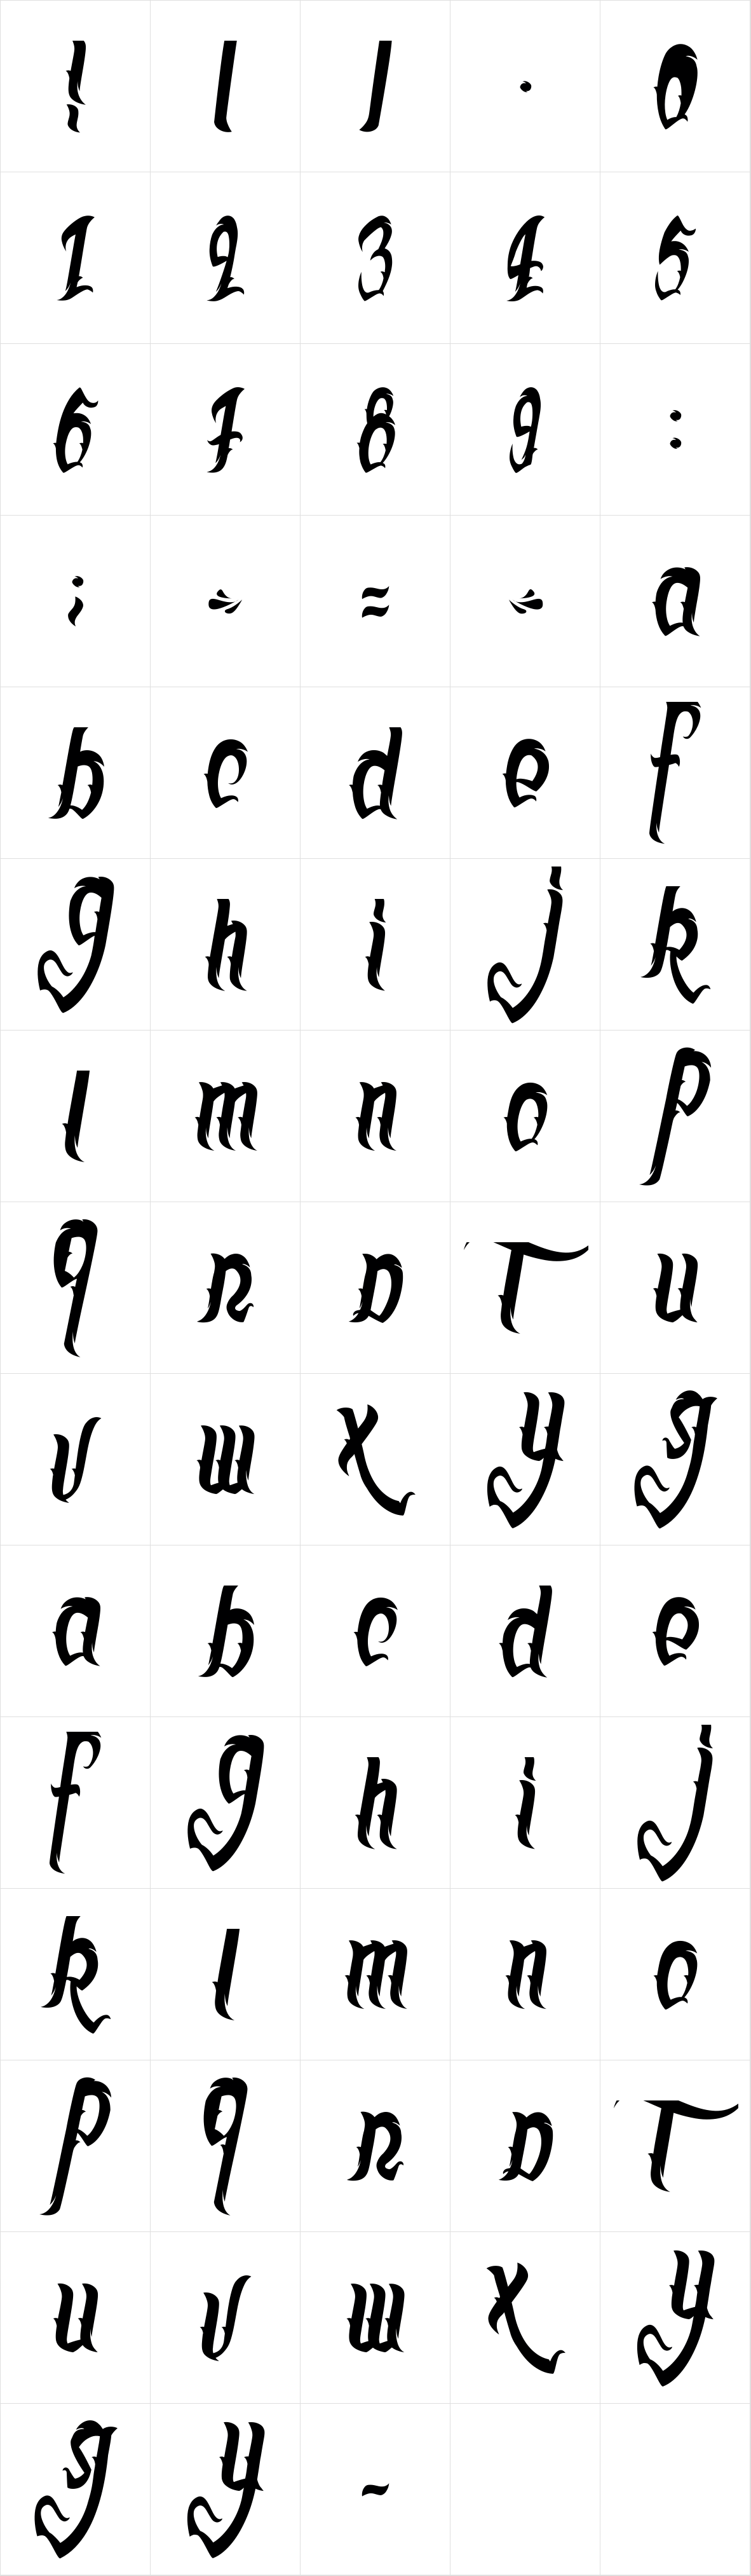 ! ( ) . 0
1 2 3 4 5
6 7 8 9 :
; < = > a
b c d e f
g h i j k
l m n o p
q r s t u
v w x y z
a b c d e
f g h i j
k l m n o
p q r s t
u v w x y
z y ~